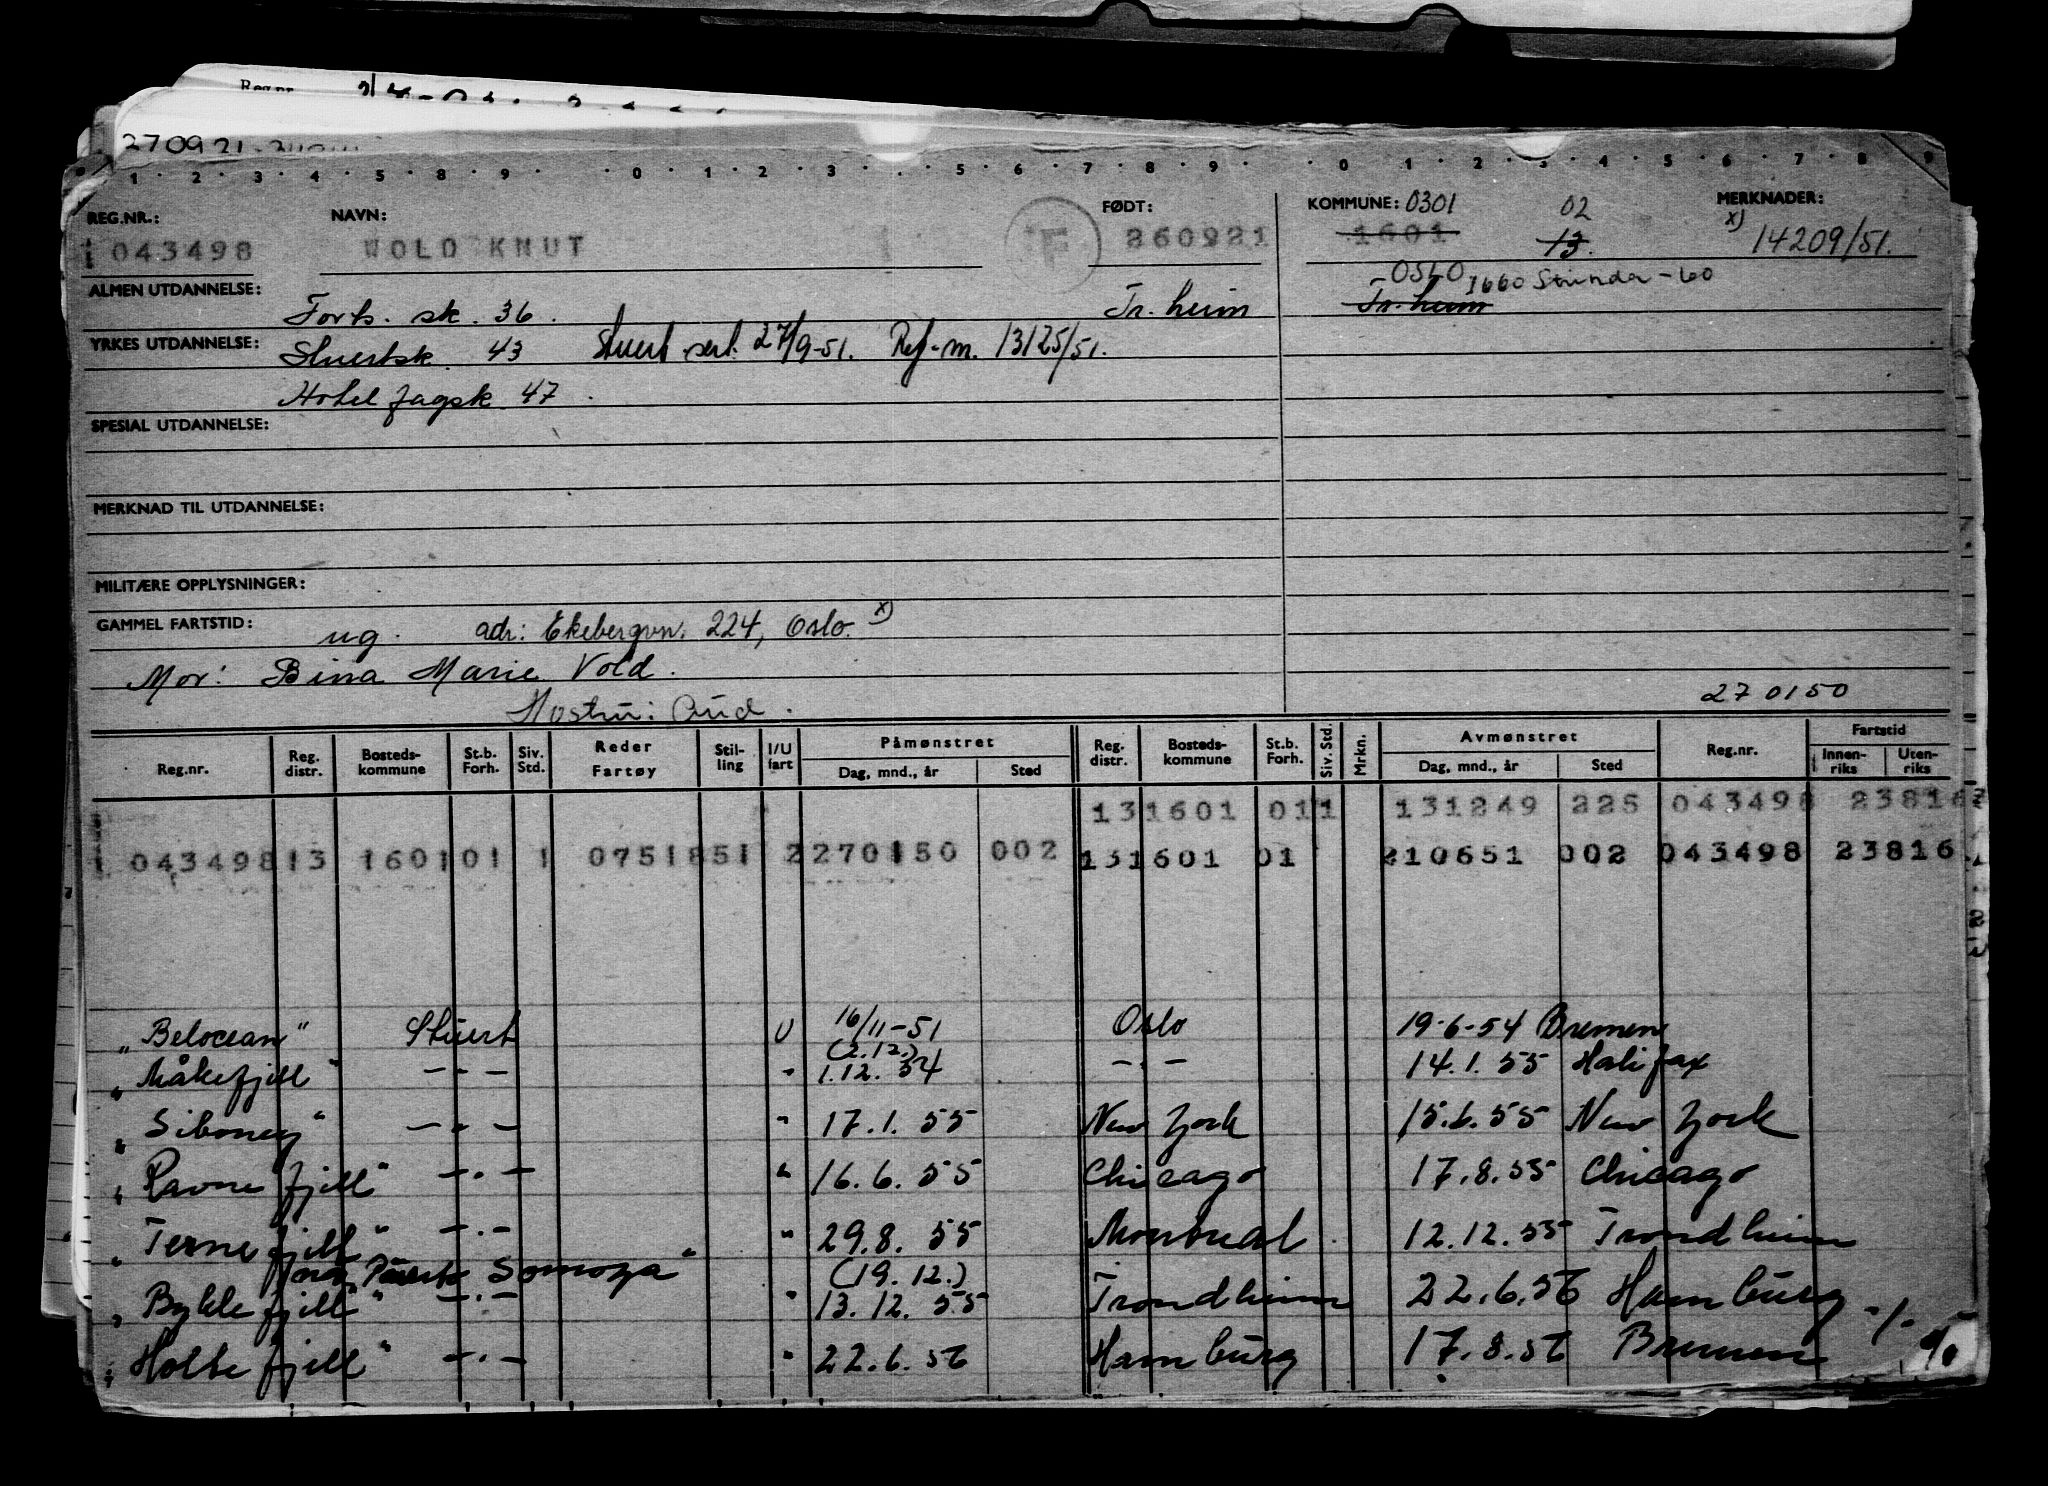 Reg.nr.
270921
1 2 3 4 5 8 9 0 1 2 3 5 6 7 8 9 0 1 2 3 4 5 6 7 8 9
REG.NR.: NAVN: FØDT: KOMMUNE: 0301 02 MERKNADER:
043498 WOLD KNUT F 260921 1601 13. x) 14209/51.
ALMEN UTDANNELSE: Forts. sk. 36. Tr. heim OSLO 1660 Strinda - 60
Tr. heim
YRKES UTDANNELSE: Stuertsk 43 Stuert sert. 27/9-51. Ref-m. 13125/51.
Hotel fagsk 47.
SPESIAL UTDANNELSE:
MERKNAD TIL UTDANNELSE:
MILITÆRE OPPLYSNINGER:
GAMMEL FARTSTID: ug. adr: Ekebergvn. 224, Oslo. x)
Mor: Bina Marie Vold.
Hustru: Aud. 270150
Reg.nr. Reg. distr. Bosteds-kommune St.b. Forh. Siv. Std. Reder Fartøy Stil-ling I/U fart Påmønstret Dag, mnd., år Sted Reg. distr. Bosteds-kommune St.b. Forh. Siv. Std. Mrkn. Avmønstret Dag, mnd., år Sted Reg.nr. Fartstid Innen-riks Uten-riks
131601 011 131249 225 043498 23816
043498 13 1601 01 1 0751851 2 270150 002 131601 01 210651 002 043498 23816
"Belocean" Stuert U 16/11-51 Oslo 19-6-54 Bremen
(2.12.)
"Måkefjell" - . - " 1.12. 54 - . - 14.1.55 Halifax
"Siboney" - . - " 17.1.55 New York 15.6.55 New York
"Ravnefjell" - . - " 16.6.55 Chicago 17.8.55 Chicago
"Ternefjell" - . - " 29.8.55 Montreal 12.12.55 Trondheim
Somoza" (19.12.)
"Byklefjell" - . - " 13.12.55 Trondheim 22.6.56 Hamburg
"Holtefjell" - . - " 22.6.56 Hamburg 17.8.56 Bremen -/-